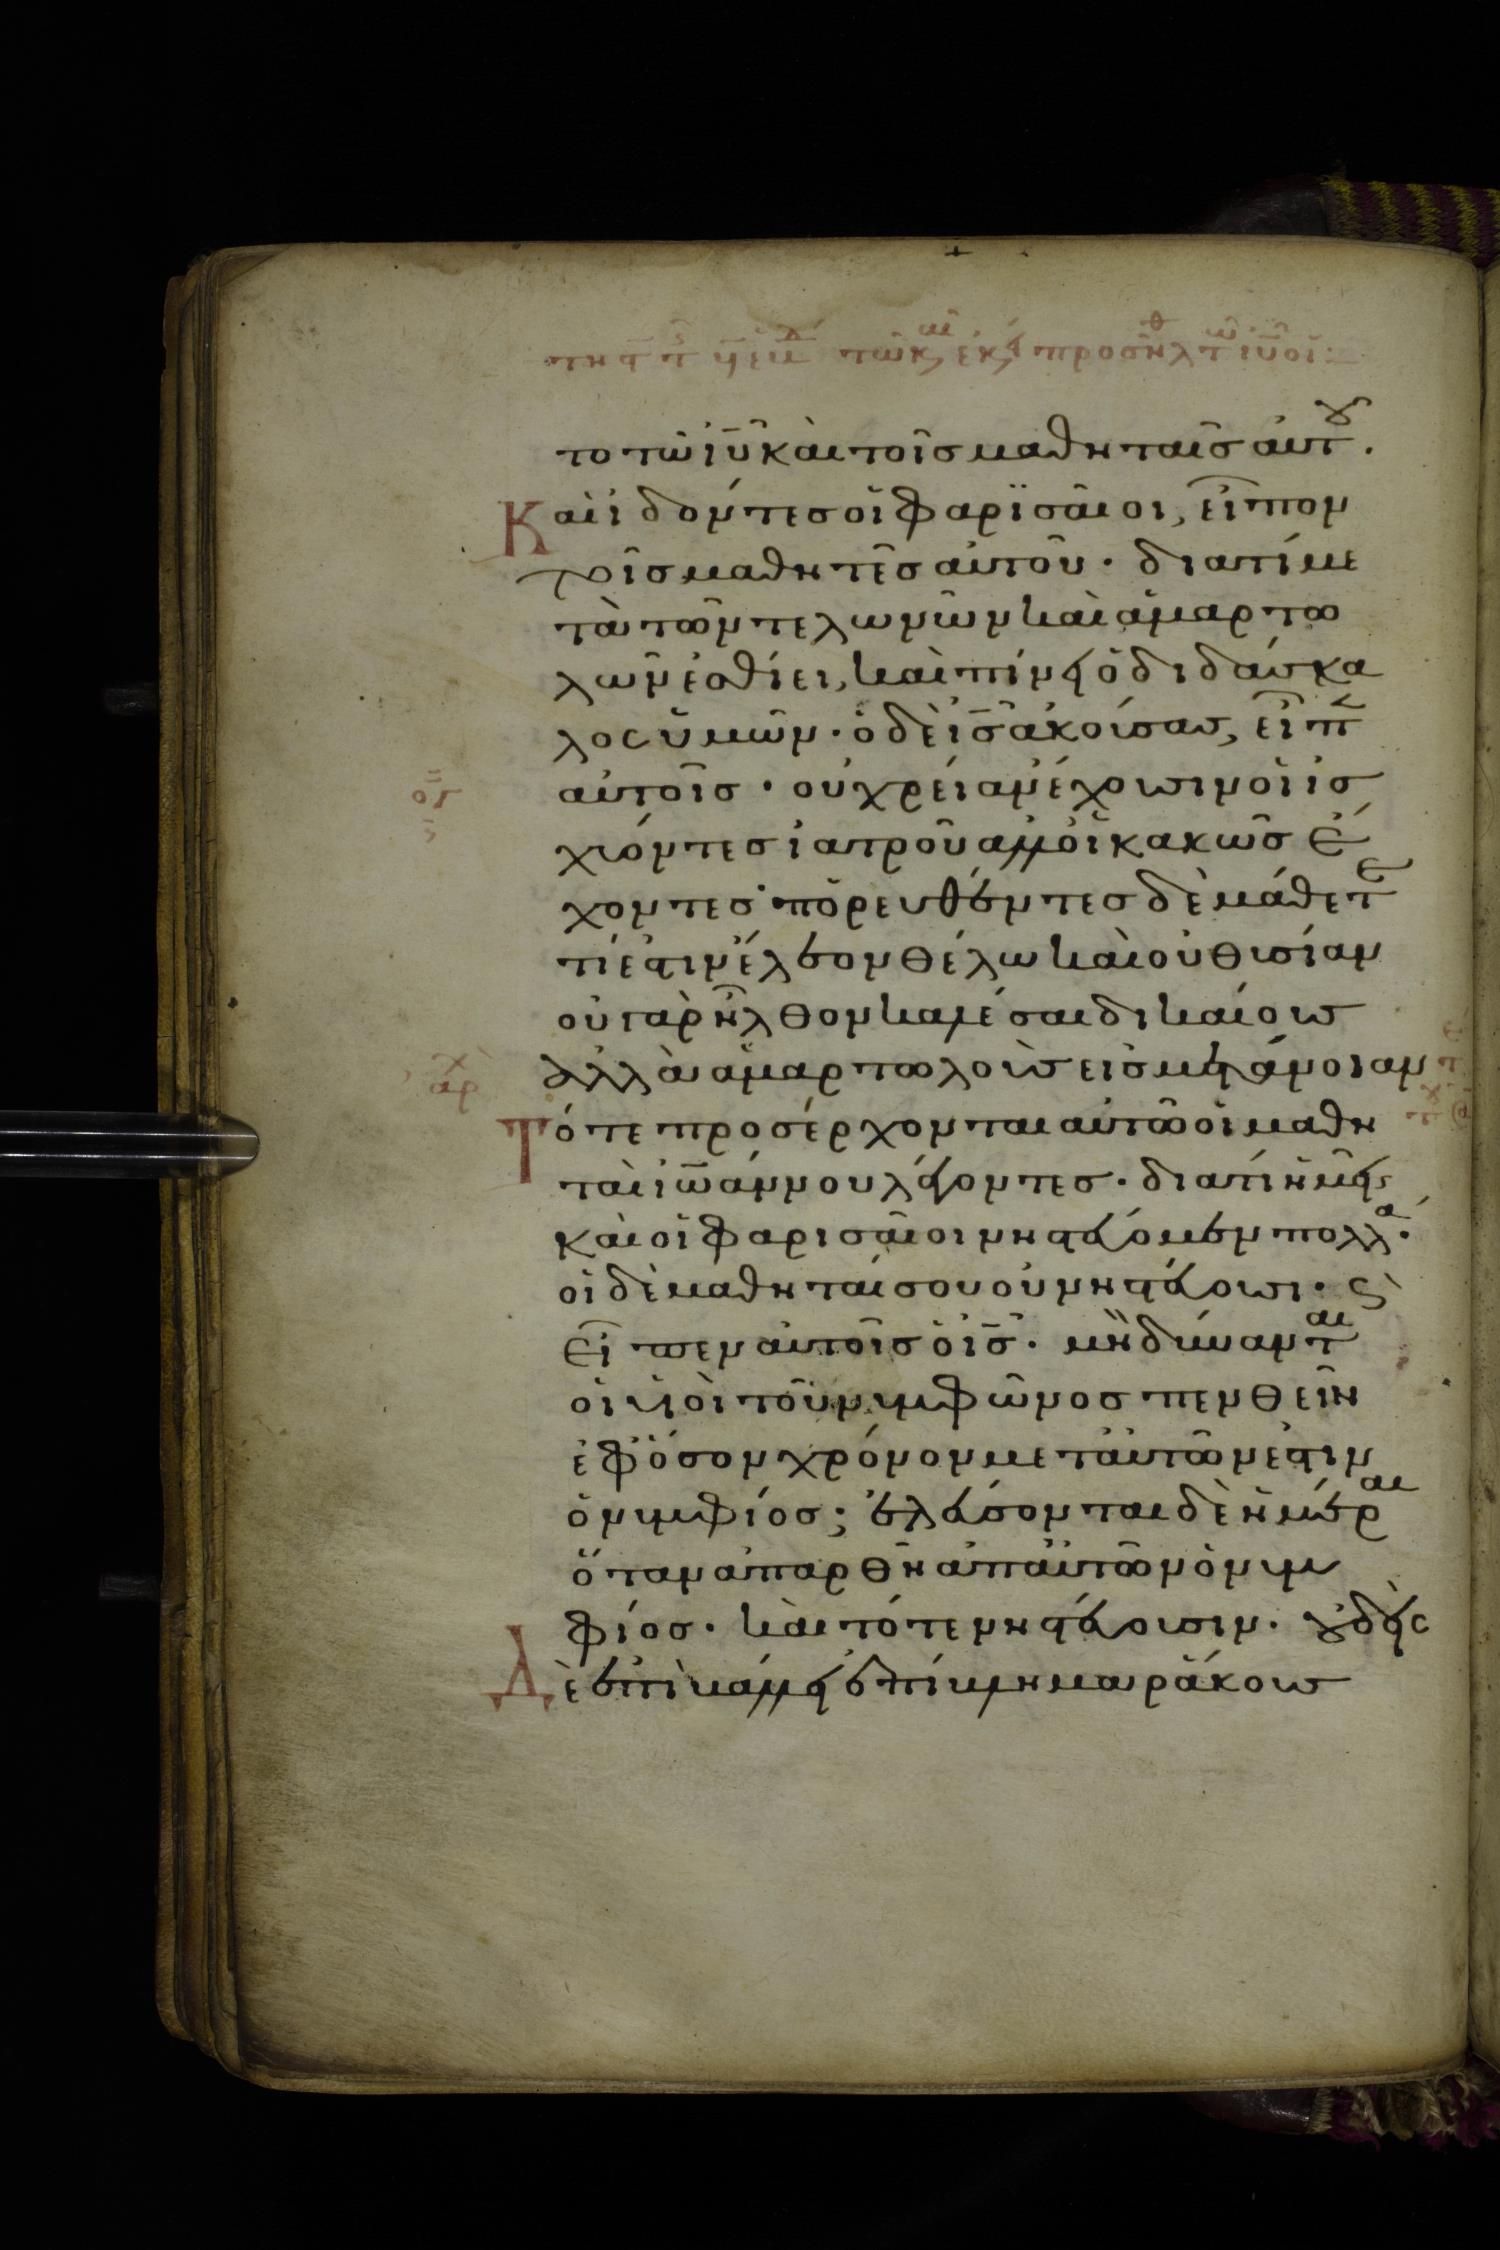 το τῶ ιῦ καὶ τοῖς μαθηταῖς αὐτου.
Καὶ ἰδόντες οἱ φαρϊσαῖοι, εἶπον
τοῖς μαθητες αὐτοῦ· διατί με
τὰ τῶν τελωνῶν καὶ ἁμαρτω
λῶν ἐσθίει, καὶ πίνει ὁ διδάσκα
λος ὑμῶν· ὁ δὲ ις ἀκούσας, εἶπεν
αὐτοῖς· οὐ χρείαν ἔχουσιν οἱ ἰσ
χύοντες ἰατροῦ ἀλλ οἱ κακῶς ἔ
χοντες· πορευθέντες δὲ μάθετε
τί ἐστιν ἔλεον θέλω καὶ οὐ θυσίαν
οὐ γὰρ ἦλθον καλέσαι δικαίους
ἀλλὰ ἁμαρτωλοὺς εἰς μετάνοιαν
ἀρχ
Τότε προσέρχονται αὐτῶ οἱ μαθη
ταὶ ἰωάννου λέγοντες· διατί ἡμεῖς
καὶ οἱ φαρισαῖοι νηστεύομεν πολλά·
οἱ δὲ μαθηταί σου οὐ νηστεύουσι· ϛ
εἶπεν αὐτοῖς ὁ ις· μὴ δύνανται
οἱ υἱοὶ τοῦ νυμφῶνος πενθεῖν
ἐφ ὅσον χρόνον μετ αὐτῶν ἐστιν
ὁ νυμφίος; ἐλεύσονται δὲ ἡμέραι
ὅταν ἀπαρθῆ ἀπ αὐτῶν ὁ νυμ
φίος· καὶ τότε νηστεύουσιν· οὐδεὶς
Δὲ ἐπιβάλλει ἐπίβλημα ῥάκους